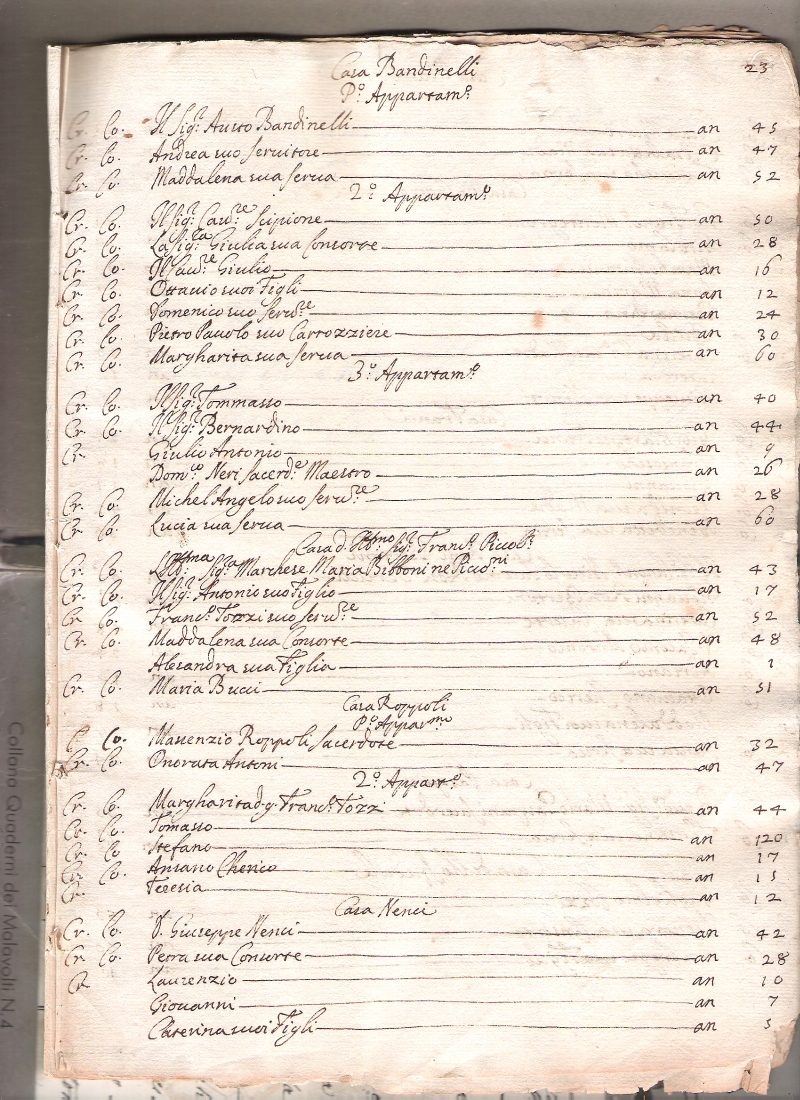 Casa Bandinelli 23
P.º Appartam.º
Cr. Co. Il Sig.r Austo Bandinelli an 45
Cr. Co. Andrea suo seruitore an 47
Cr. Co. Maddalena sua serua an 52
2.º Appartam.º
Cr. Co. Il Sig.r Cau.re Scipione an 50
Cr. Co. La Sig.ra Giulia sua Consorte an 28
Cr. Co. Il Cau.re Giulio an 16
Cr. Co. Ottauio suoi Figli an 12
Cr. Co. Domenico suo seru.re an 24
Cr. Co. Pietro Pauolo suo Carrozziere an 30
Cr. Co. Margharita sua serua an 60
3.º Appartam.º
Cr. Co. Il Sig.r Tommasso an 40
Cr. Co. Il Sig.r Bernardino an 44
Cr. Giulio Antonio an 9
Dom.co Neri Sacerd.e Maestro an 26
Cr. Co. Michel Angelo suo seru.re an 28
Cr. Co. Lucia sua serua an 60
Casa d. Ill.mo Sig.r Franc.º Piccol.i
Cr. Co. L'Ill.ma Sig.ra Marchese Maria Bibboni ne Picc.ni an 43
Cr. Co. Il Sig.r Antonio suo Figlio an 17
Cr. Co. Franc.º Tozzi suo seru.re an 52
Cr. Co. Maddalena sua Consorte an 48
Alesandra sua Figlia an 1
Cr. Co. Maria Bucci an 51
Casa Roppoli
P.º Appar.mo
Co. Massenzio Roppoli Sacerdote an 32
Cr. Co. Onorata Antoni an 47
2.º Appart.º
Cr. Co. Margharita d. q. Franc.º Tozzi an 44
Cr. Co. Tomasso an 120
Cr. Co Stefano an 17
Cr. Co. Ansano Cherico an 15
Cr. Teresia an 12
Casa Nenci
Cr. Co. S. Giuseppe Nenci an 42
Cr. Co. Petra sua Consorte an 28
Cr Laurenzio an 10
Giouanni an 7
Caterina suoi Figli an 5
Collana Quaderni dei Malavolti N. 4